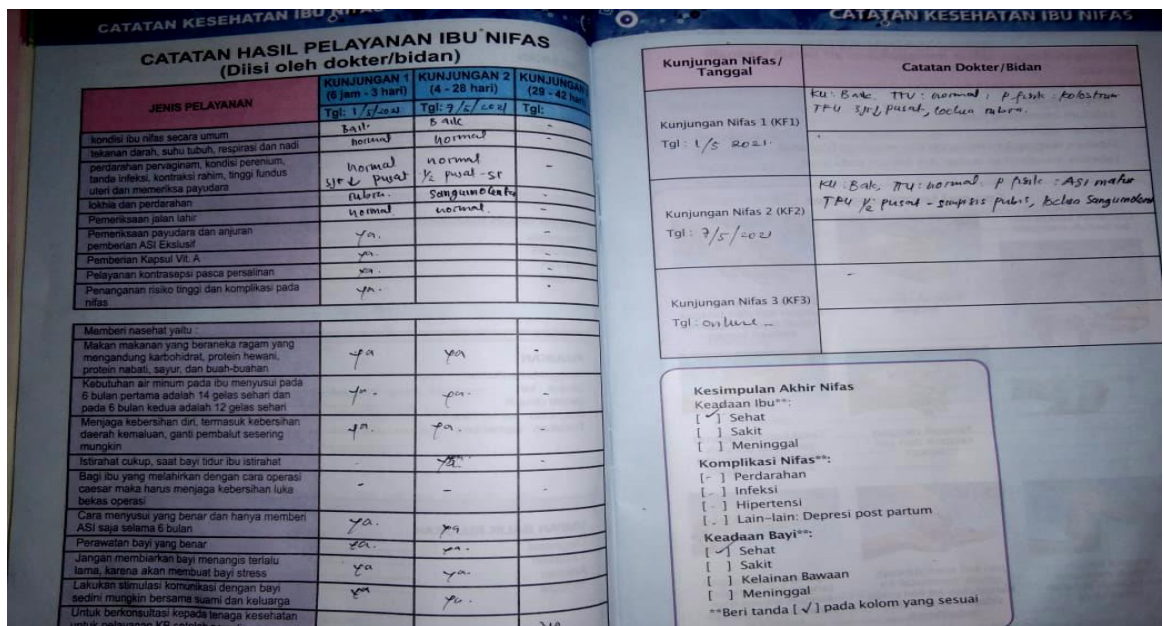 CATATAN KESEHATAN IBU NIFAS
CATATAN HASIL PELAYANAN IBU NIFAS
(Diisi oleh dokter/bidan)
JENIS PELAYANAN
KUNJUNGAN 1 (6 jam - 3 hari)
KUNJUNGAN 2 (4 - 28 hari)
KUNJUNGAN (29 - 42 hari)
Tgl: 1/5/2021
Tgl: 7/5/2021
Tgl:
kondisi ibu nifas secara umum
Baik
Baik
-
tekanan darah, suhu tubuh, respirasi dan nadi
normal
normal
-
perdarahan pervaginam, kondisi perenium,
tanda infeksi, kontraksi rahim, tinggi fundus
uteri dan memeriksa payudara
normal
pusat
normal
1/2 pusat - sr
-
lokhia dan perdarahan
rubra.
Pemeriksaan jalan lahir
normal
normal.
Pemeriksaan payudara dan anjuran
pemberian ASI Ekslusif
ya.
-
Pemberian Kapsul Vit. A
ya.
-
Pelayanan kontrasepsi pasca persalinan
ya.
-
Penanganan risiko tinggi dan komplikasi pada
nifas
ya.
-
Memberi nasehat yaitu :
Makan makanan yang beraneka ragam yang
mengandung karbohidrat, protein hewani,
protein nabati, sayur, dan buah-buahan
ya
ya
-
Kebutuhan air minum pada ibu menyusui pada
6 bulan pertama adalah 14 gelas sehari dan
pada 6 bulan kedua adalah 12 gelas sehari
ya.
ya.
-
Menjaga kebersihan diri, termasuk kebersihan
daerah kemaluan, ganti pembalut sesering
mungkin
ya.
ya.
-
Istirahat cukup, saat bayi tidur ibu istirahat
-
Bagi ibu yang melahirkan dengan cara operasi
caesar maka harus menjaga kebersihan luka
bekas operasi
-
-
-
Cara menyusui yang benar dan hanya memberi
ASI saja selama 6 bulan
ya.
ya
Perawatan bayi yang benar
ya.
ya.
Jangan membiarkan bayi menangis terlalu
lama, karena akan membuat bayi stress
ya
ya.
Lakukan stimulasi komunikasi dengan bayi
sedini mungkin bersama suami dan keluarga
ya
ya.
Untuk berkonsultasi kepada tenaga kesehatan
untuk pelayanan KB setelah
CATATAN KESEHATAN IBU NIFAS
Kunjungan Nifas/
Tanggal
Catatan Dokter/Bidan
Kunjungan Nifas 1 (KF1)
Tgl : 1/5 2021.
KU : Baik, TTV : normal, P. fisik : kolostrum
TFU pusat, lochea rubra.
Kunjungan Nifas 2 (KF2)
Tgl : 7/5/2021
KU : Baik, TTV : normal, P fisik : ASI
TFU 1/2 pusat - simpisis pubis, lochea
Kunjungan Nifas 3 (KF3)
Tgl : online -
-
Kesimpulan Akhir Nifas
Keadaan Ibu**:
[ ✓ ] Sehat
[ ] Sakit
[ ] Meninggal
Komplikasi Nifas**:
[ - ] Perdarahan
[ - ] Infeksi
[ - ] Hipertensi
[ - ] Lain-lain: Depresi post partum
Keadaan Bayi**:
[ ✓ ] Sehat
[ ] Sakit
[ ] Kelainan Bawaan
[ ] Meninggal
**Beri tanda [ √ ] pada kolom yang sesuai